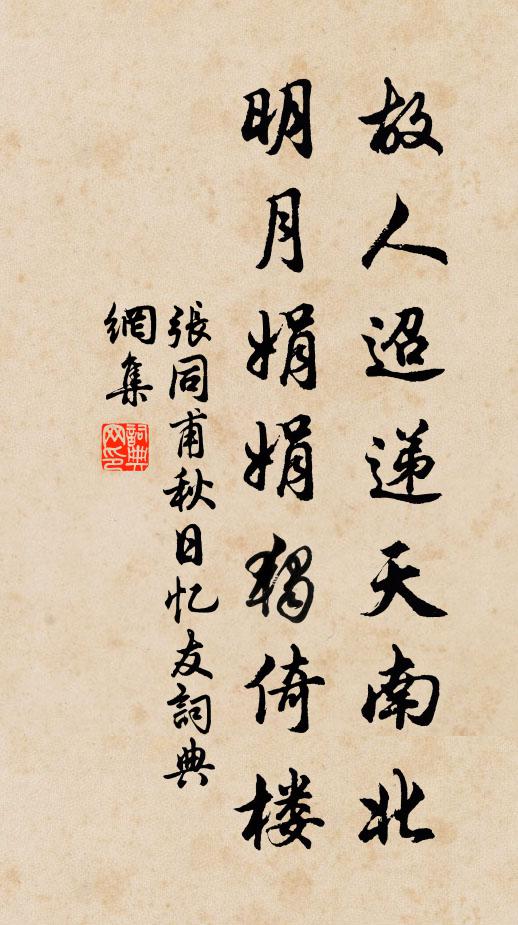 故人迢递天南北
明月娟娟独倚楼
張同甫秋日忆友詞典
網集
詞典
网印